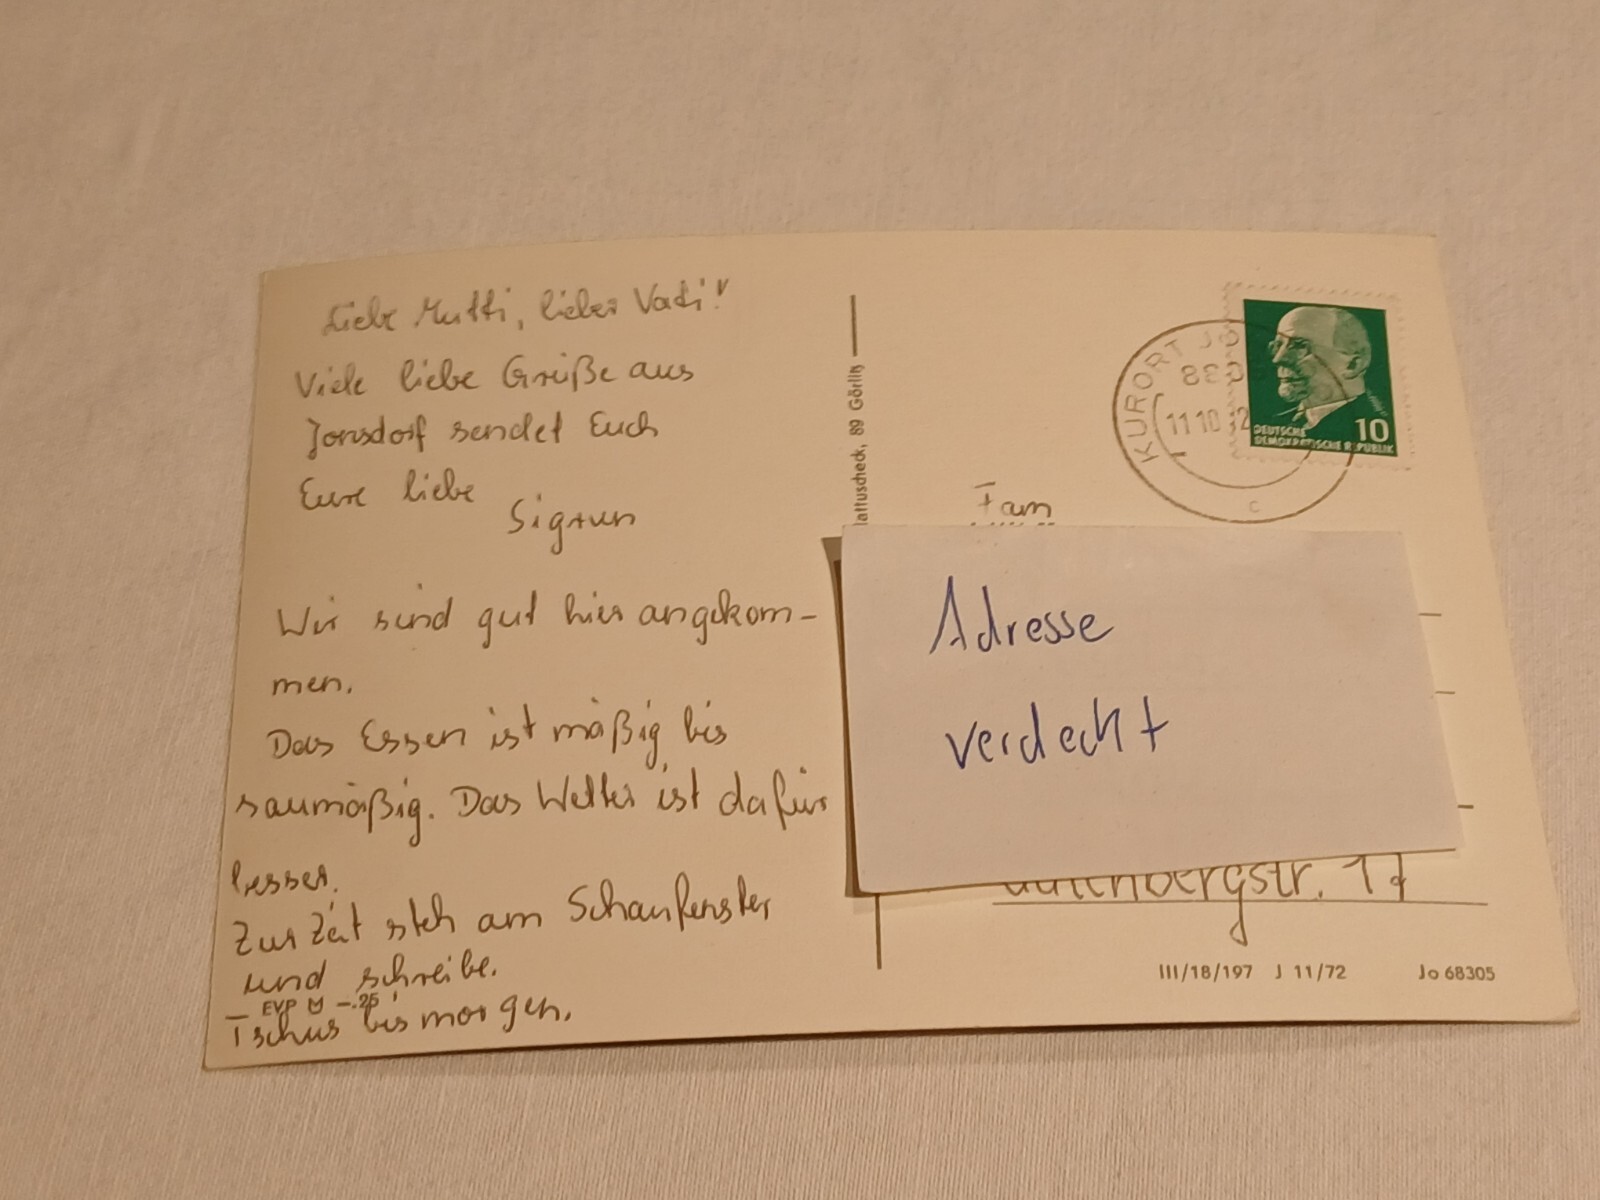 Liebe Mutti, lieber Vati!
Viele liebe Grüße aus
Jonsdorf sendet Euch
Eure liebe
Sigrun
Wir sind gut hier angekom-
men.
Das Essen ist mäßig bis
saumäßig. Das Wetter ist dafür
besser.
Zur Zeit steh am Schaufenster
und schreibe.
EVP M -.25
Tschüs bis morgen.
89 Görlitz
KURORT JO
11 10
10
DEUTSCHE
DEMOKRATISCHE REPUBLIK
c
Fam
Adresse
verdeckt
17
III/18/197 J 11/72 Jo 68305